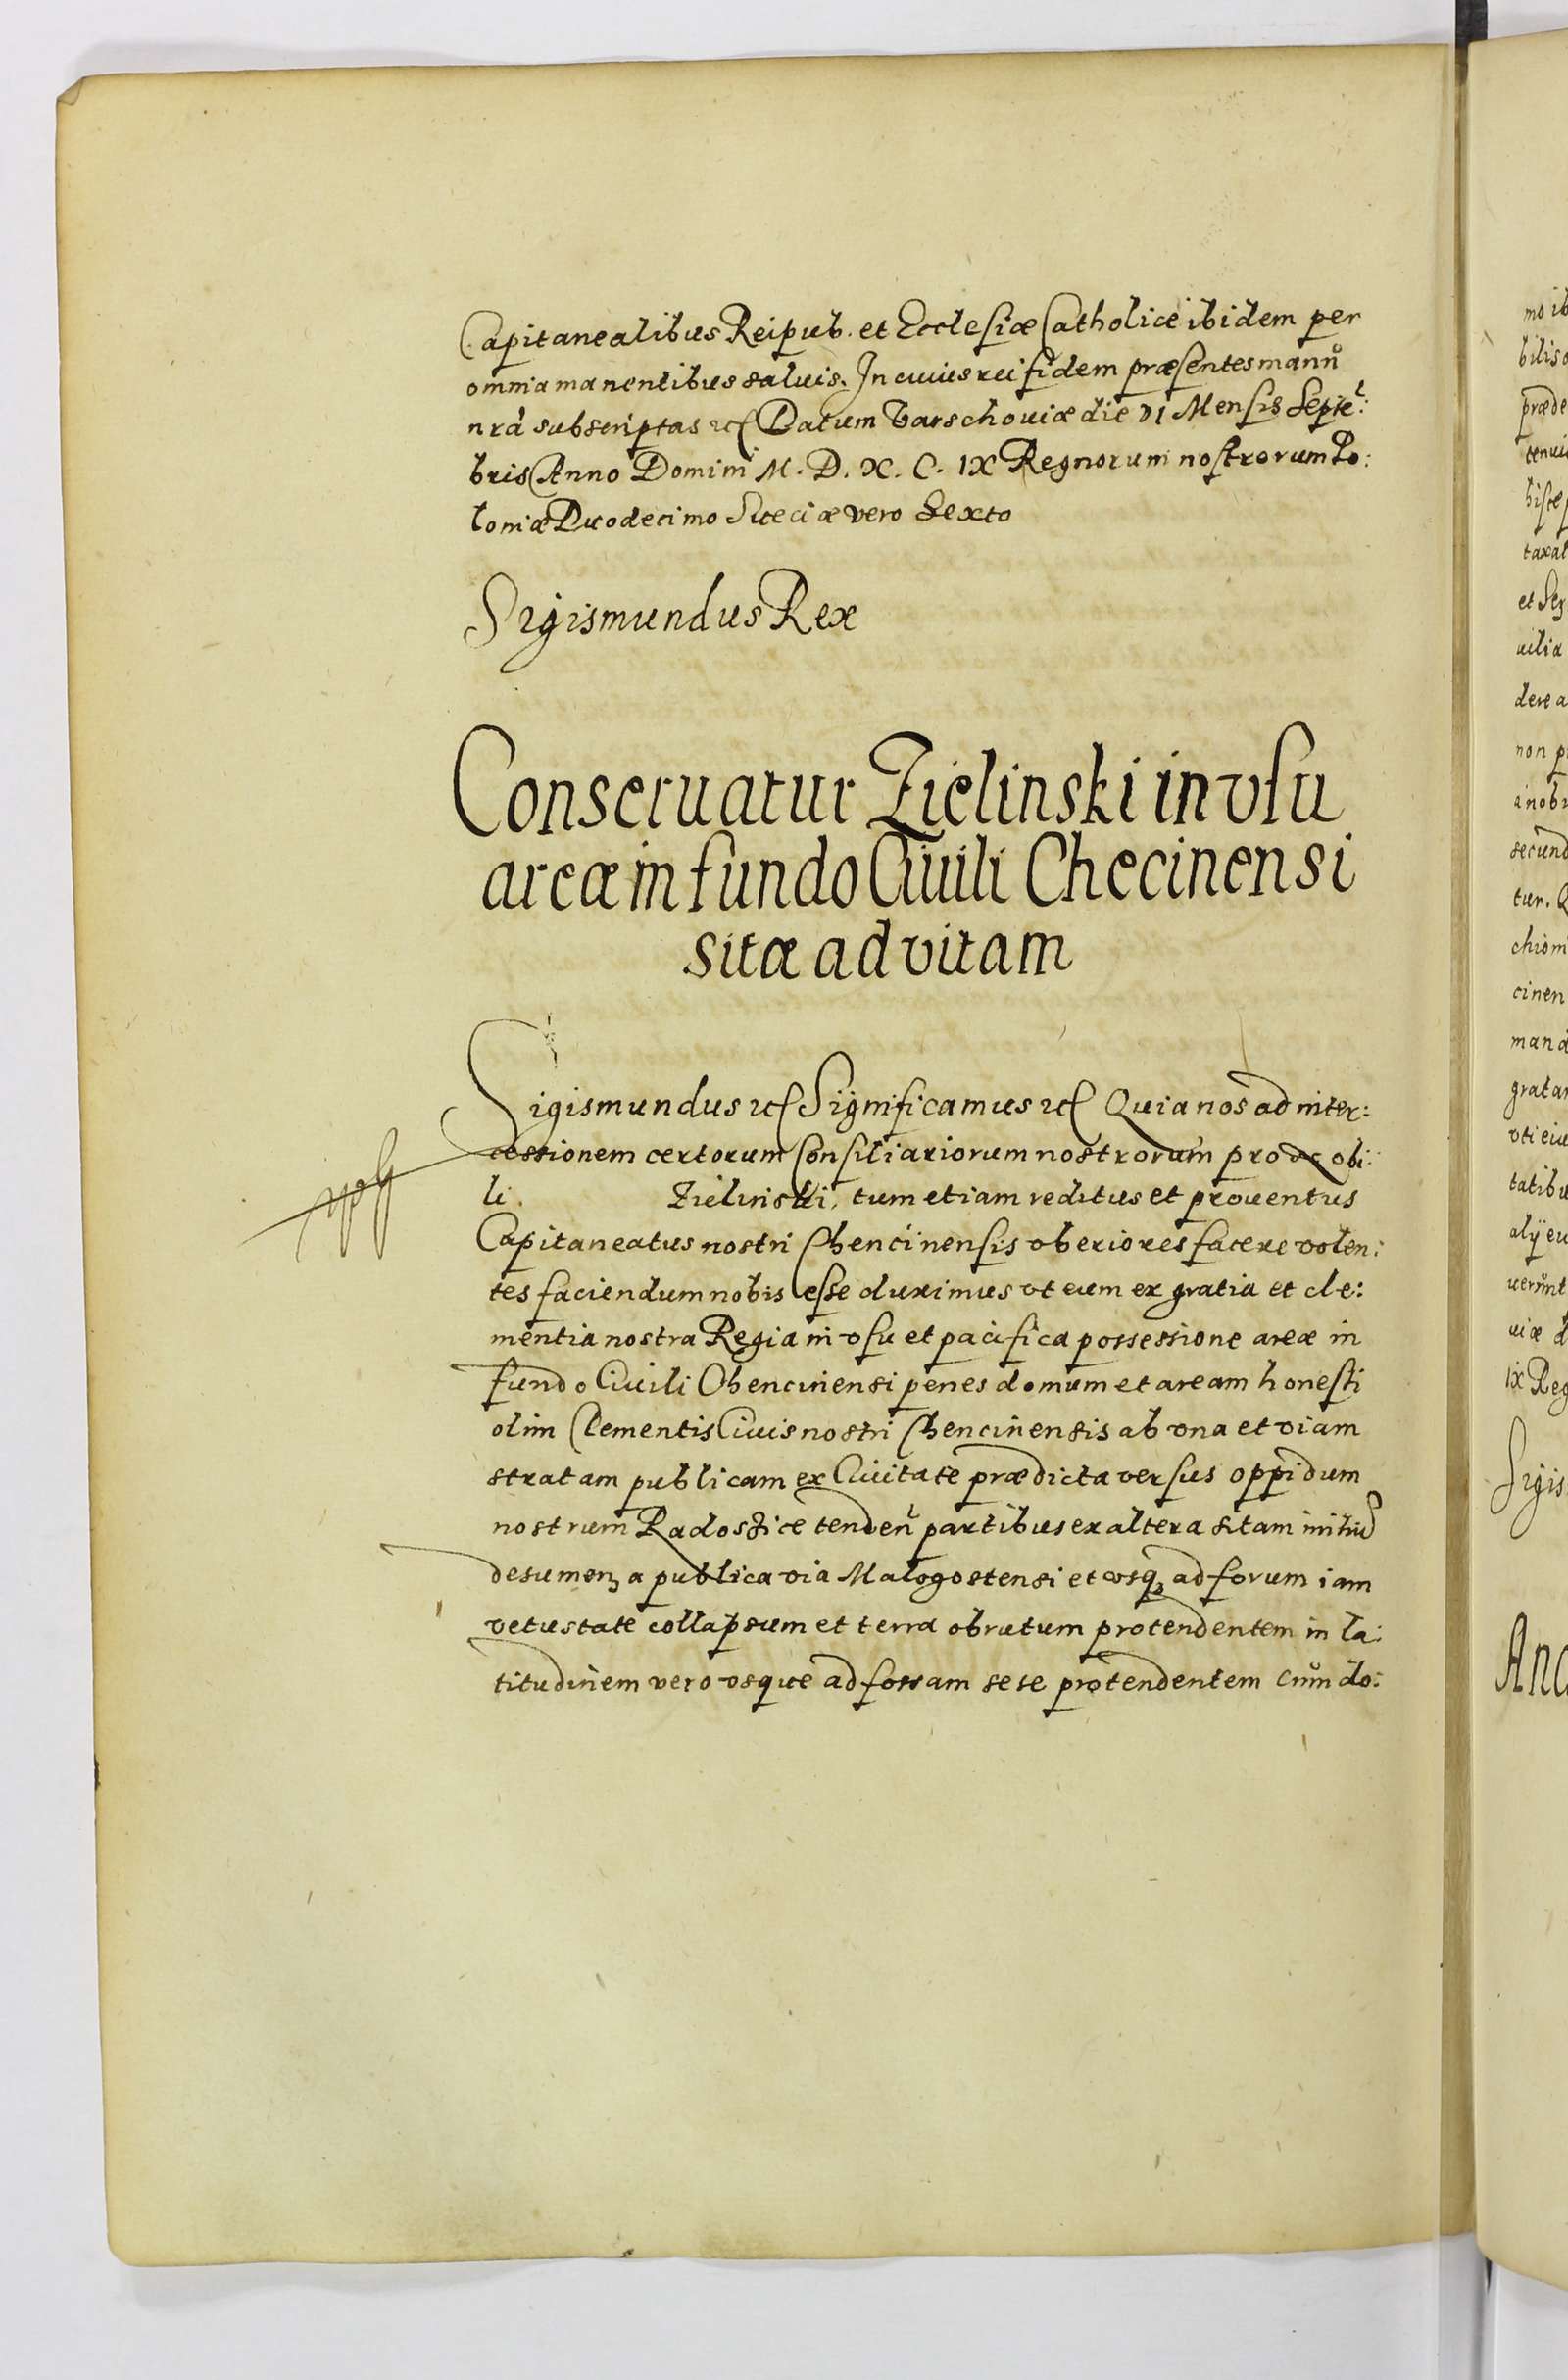 Capitanealibus Reipub. et Ecclesiæ Catholice ibidem per
omnia manentibus saluis. In cuius rei fidem præsentes manũ
nrã subscriptas etc Datum Varschouiæ die VI Mensis Septẽ:
bris Anno Domini M. D. X. C. IX Regnorum nostrorum Po:
loniæ Duodecimo Sueciæ vero Sexto
Sigismundus Rex
Conseruatur Zielinski in vsu
areæ in fundo Ciuili Checinensi
sitæ ad vitam
Sigismundus etc Significamus etc Quia nos ad inter:
cessionem certorum Consiliariorum nostrorum pro nobi:
li Zielinski, tum etiam reditus et prouentus
Capitaneatus nostri Chencinensis vberiores facere volen:
tes faciendum nobis esse duximus vt eum ex gratia et cle:
mentia nostra Regia in vsu et pacifica possessione areæ in
fundo Ciuili Chencinensi penes domum et aream honesti
olim Clementis Ciuis nostri Chencinensis ab vna et viam
stratam publicam ex Ciuitate prædicta versus oppidum
nostrum Radoszice tendeñ partibus ex altera sitam initiũ
desumen a publica via Malogostensi et vsq ad forum iam
vetustate collapsum et terra obrutum protendentem in la:
titudinem vero vsque ad fossam sese protendentem cũm do:
mo ib
bilis
præde
tenui
taxal
et Ser
uilia
dere a
non p
a nob
secund
tur. Q
chiom
cinen
mand
gratar
vti eiu
tatibu
alÿ eu
uerũnt
uiæ d
IX Reg
Sigis
Anc